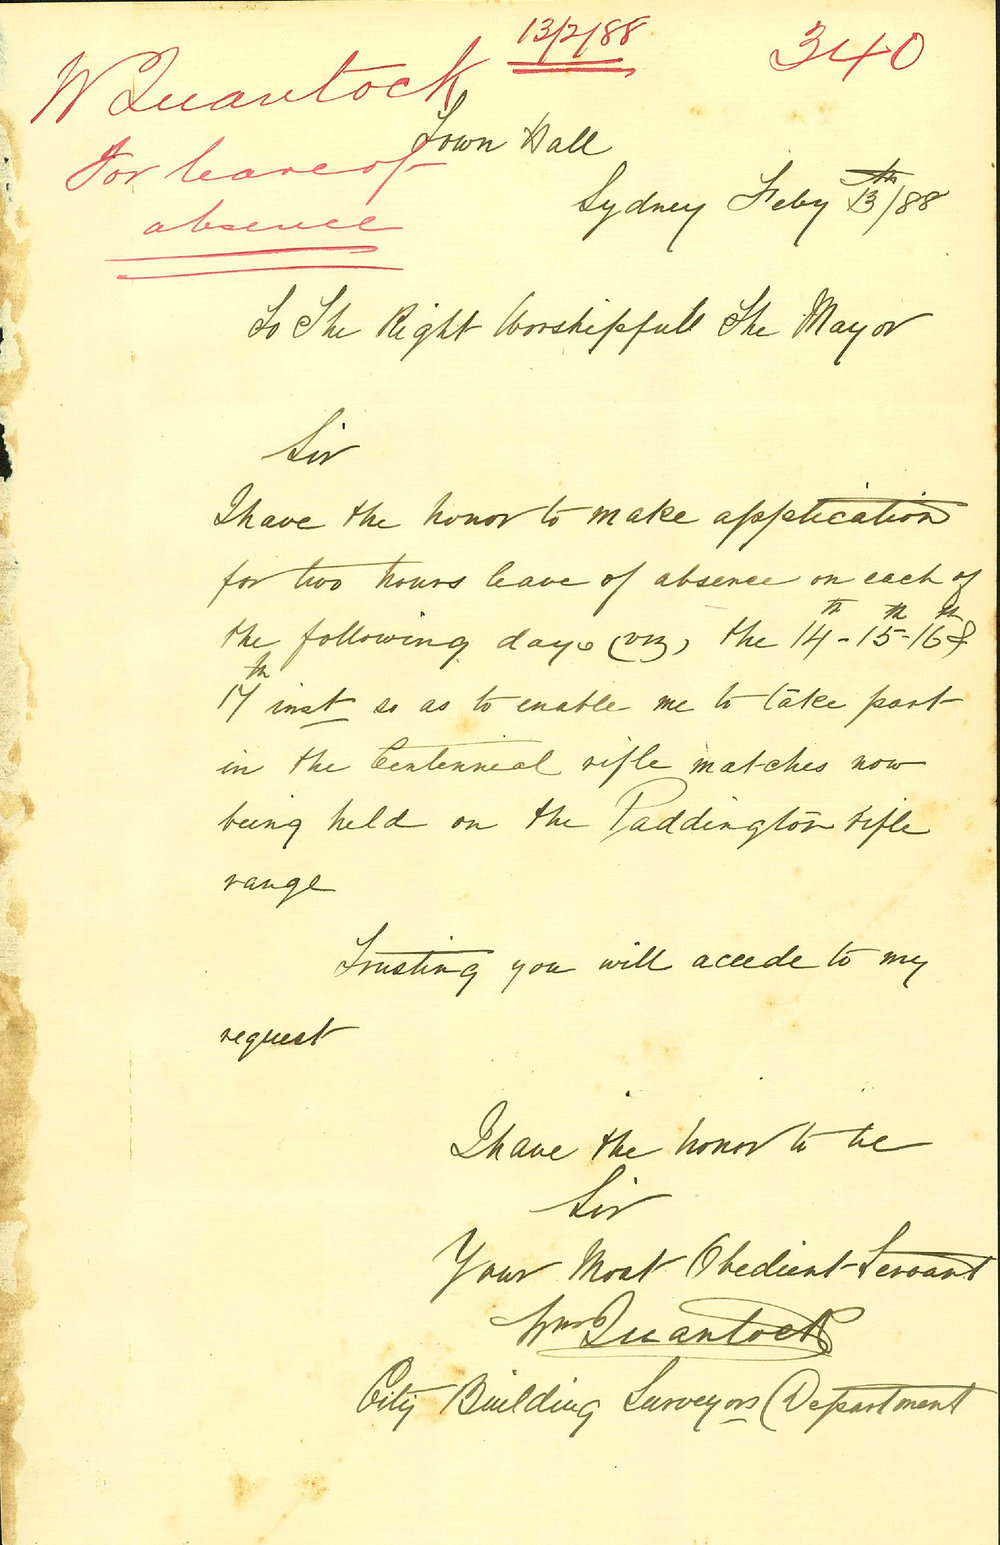 13/2/88
340
W Quantock
For leave of
absence
Town Hall
Sydney Feby 13th/88
To The Right Worshipfull The Mayor
Sir
I have the honor to make application
for two hours leave of absence on each of
the following days (viz) the 14th - 15th - 16th &
17th inst so as to enable me to take part
in the Centennial rifle matches now
being held on the Paddington rifle
range
Trusting you will accede to my
request
I have the honor to be
Sir
Your Most Obedient Servant
Wm Quantock
City Building Surveyors Department